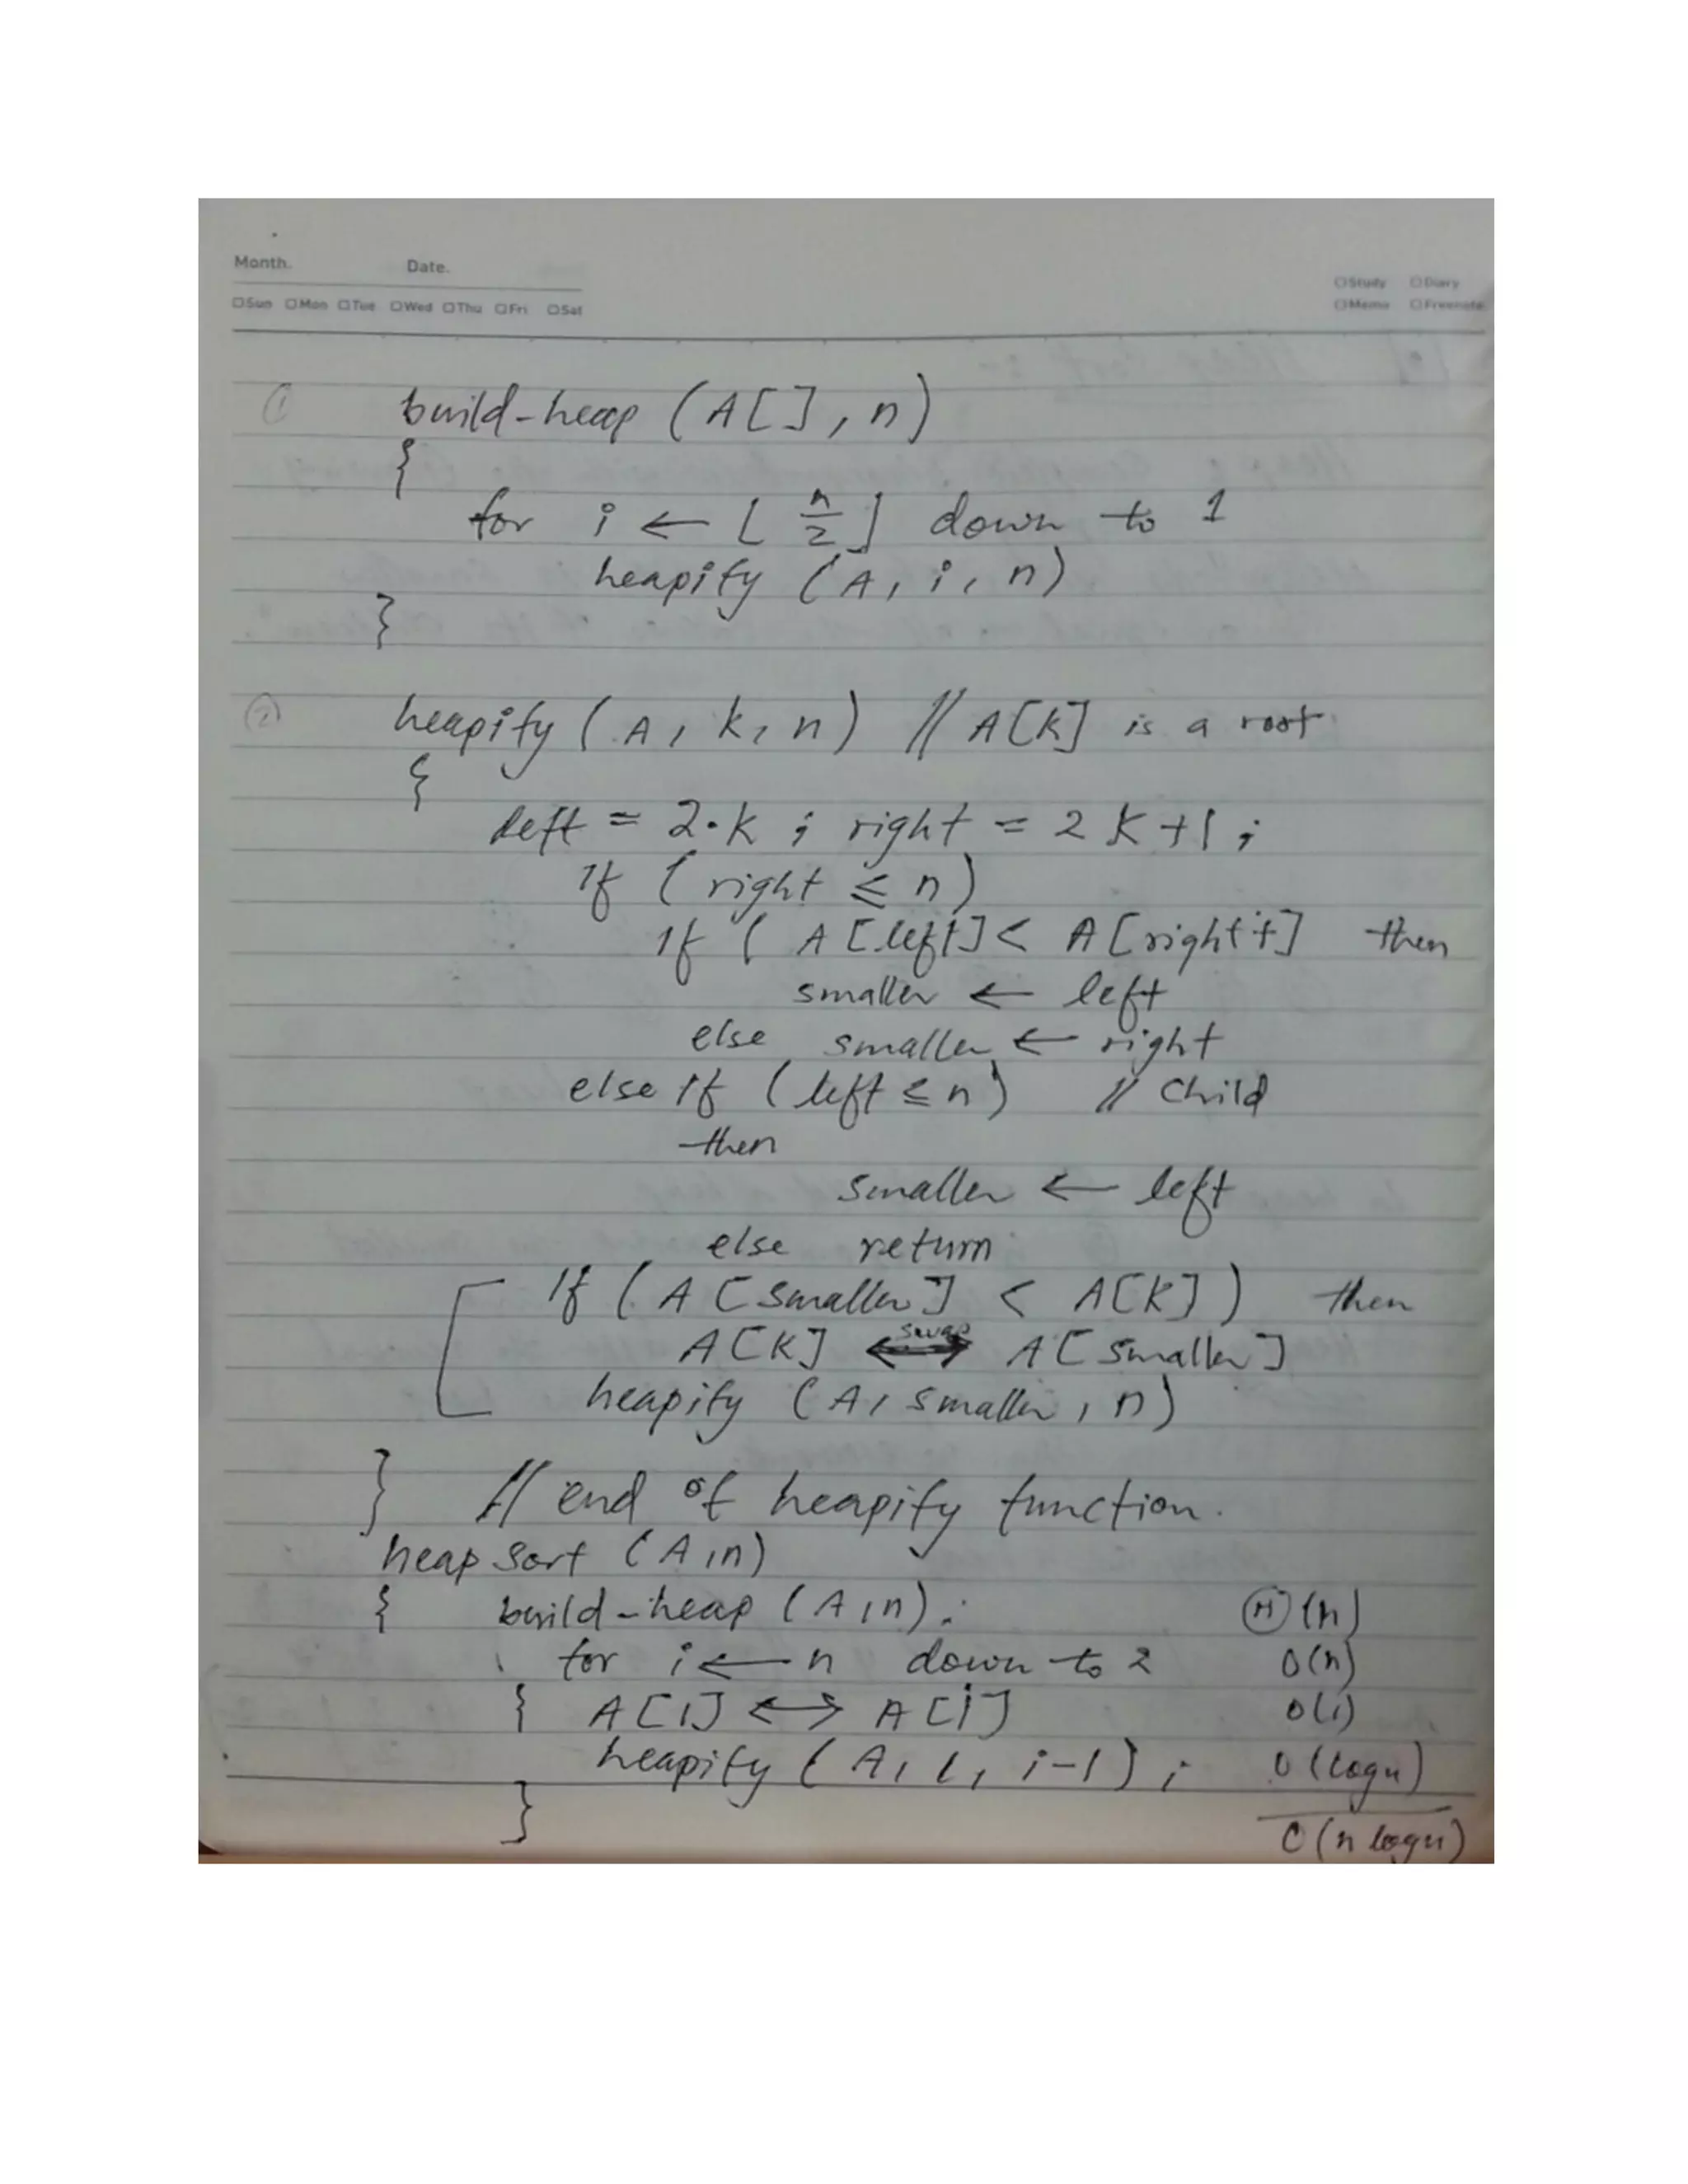 Month. Date.
□Sun □Mon □Tue □Wed □Thu □Fri □Sat
□Study □Diary
□Memo □Freenote
① build-heap (A[], n)
{
for i ← ⌊ n/2 ⌋ down to 1
heapify (A, i, n)
}
② heapify (A, k, n) // A[K] is a root
{
left = 2·K ; right = 2K+1 ;
If (right ≤ n)
If ( A[left] < A[right] then
smaller ← left
else smaller ← right
else If (left ≤ n) // Child
then
smaller ← left
else return
If (A[smaller] < A[K]) then
A[K] ⟷ swap A[smaller]
heapify (A, smaller, n)
} // end of heapify function.
heap sort (A, n)
{ build-heap (A, n); Θ(n)
for i ← n down to 2 O(n)
{ A[1] ↔ A[i] O(1)
heapify (A, 1, i-1) ; O(logn)
} O(n logn)